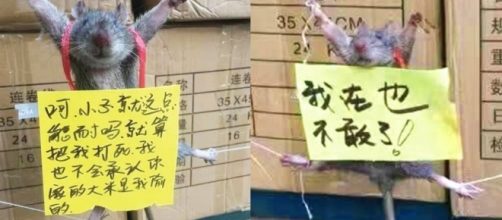 呵,小子就这点
能耐吗,就算
把我打死,我
也不会承认你
家的大米是我偷
的.
我在也
不敢了!
连卷
35×4
24
16
名称
规格
35×45CM
24 K
规
重
数
日
检